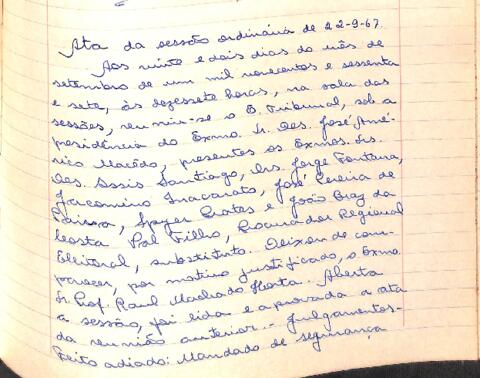 Ata da sessão ordinária de 22-9-67.
Aos vinte e dois dias do mês de
setembro de um mil novecentos e sessenta
e sete, às dezessete horas, na sala das
sessões, reuniu-se o E. Tribunal, sob a
presidência do Exmo. Sr. Des. José Amé-
rico Macêdo, presentes os Exmos. Srs.
Des. Assis Santiago, Drs. Jorge Fontana,
Jacomino Inacarato, José Pereira de
Paiva, Spyer Prates e João Braz da
Costa Val Filho, Procurador Regional
Eleitoral, substituto. Deixou de com-
parecer, por motivo justificado, o Exmo.
Sr. Prof. Raul Machado Horta. Aberta
a sessão, foi lida e aprovada a ata
da reunião anterior. - Julgamentos -
Feito adiado: Mandado de segurança